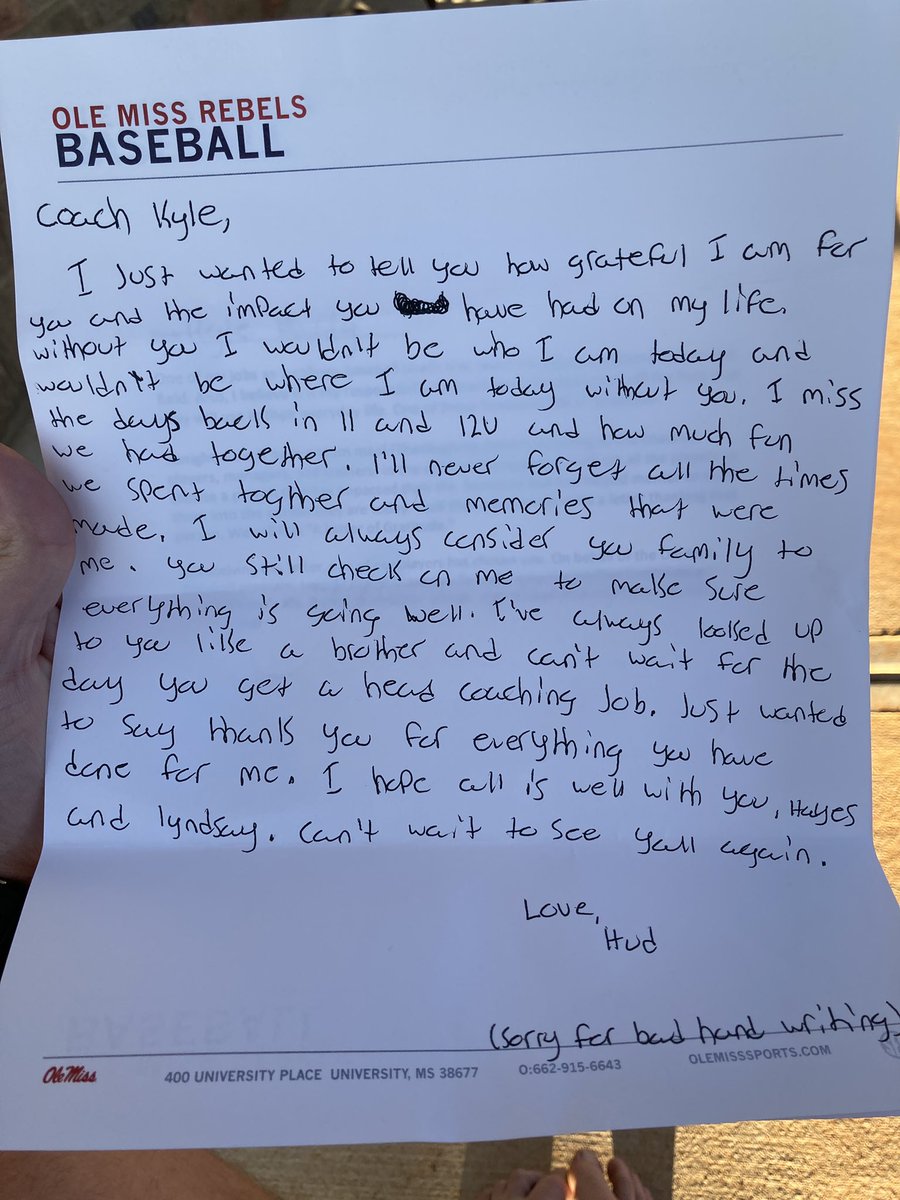 OLE MISS REBELS
BASEBALL
Coach Kyle,
I Just wanted to tell you how grateful I am for
you and the impact you have had on my life.
without you I wouldn't be who I am today and
wouldn't be where I am today without you. I miss
the days back in 11 and 12U and how much fun
we had together. I'll never forget all the times
we spent togther and memories that were
made. I will always consider you family to
me. you still check on me to make sure
everything is going well. I've always looked up
to you like a brother and can't wait for the
day you get a head coaching job. Just wanted
to say thank you for everything you have
done for me. I hope all is well with you, Hayes
and lyndsay. Can't wait to see yall again.
Love,
Hud
(Sorry for bad hand writing)
Ole Miss 400 UNIVERSITY PLACE UNIVERSITY, MS 38677 O:662-915-6643 OLEMISSSPORTS.COM